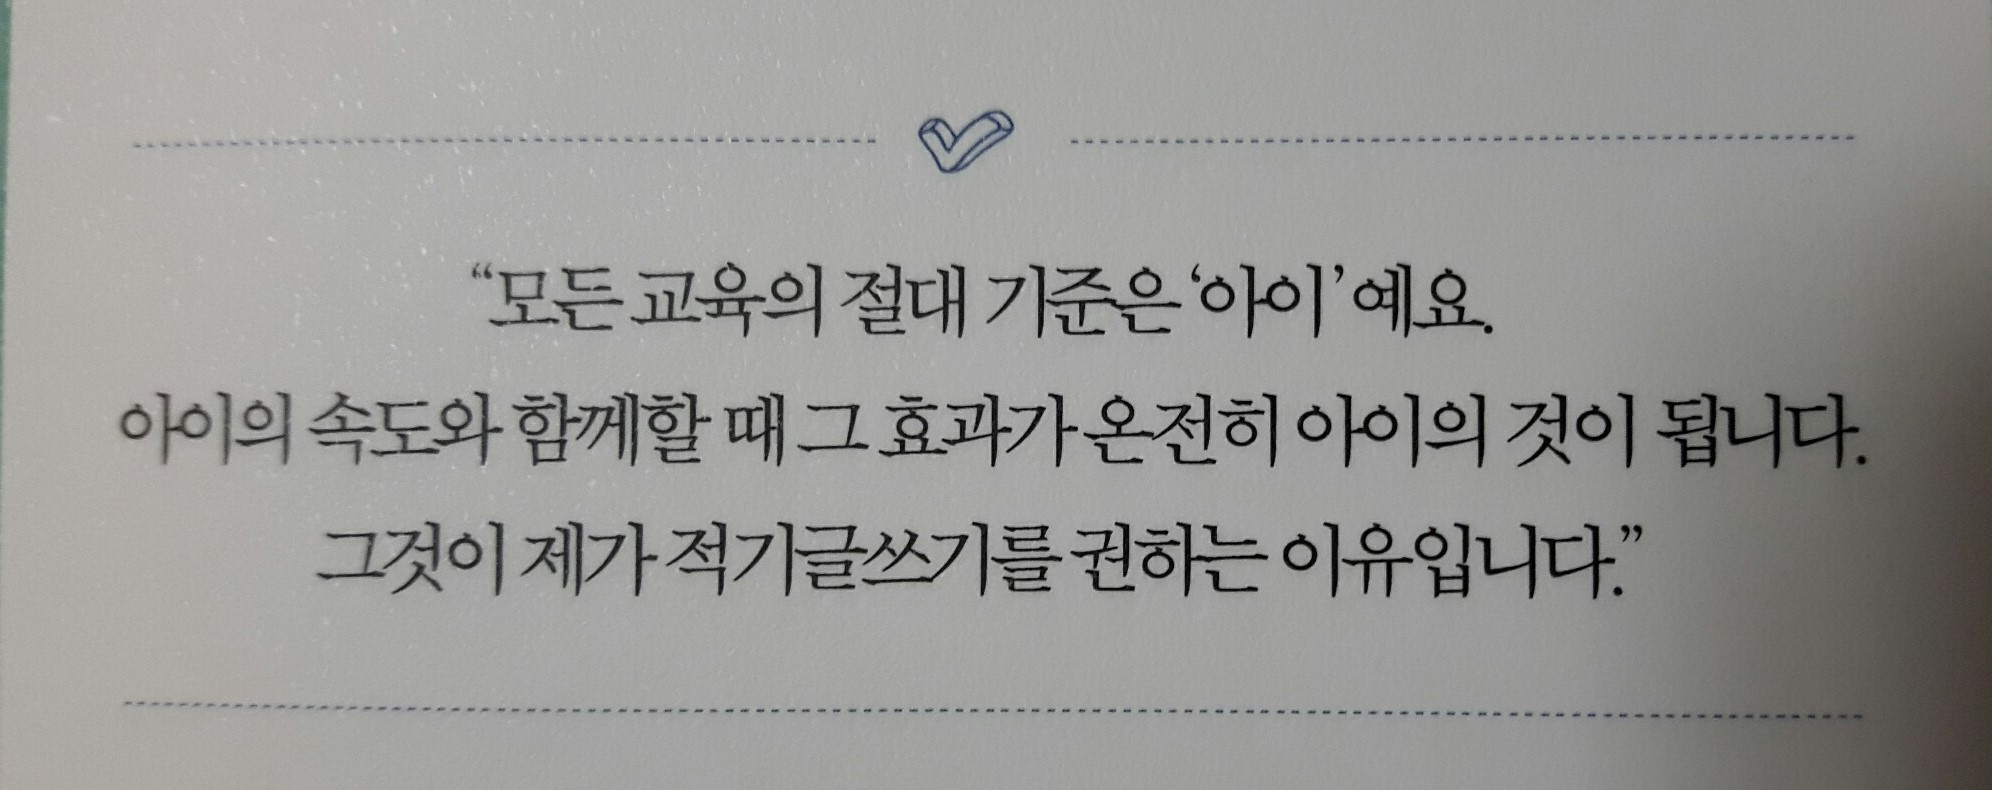 “모든 교육의 절대 기준은 ‘아이’예요.
아이의 속도와 함께할 때 그 효과가 온전히 아이의 것이 됩니다.
그것이 제가 적기글쓰기를 권하는 이유입니다.”